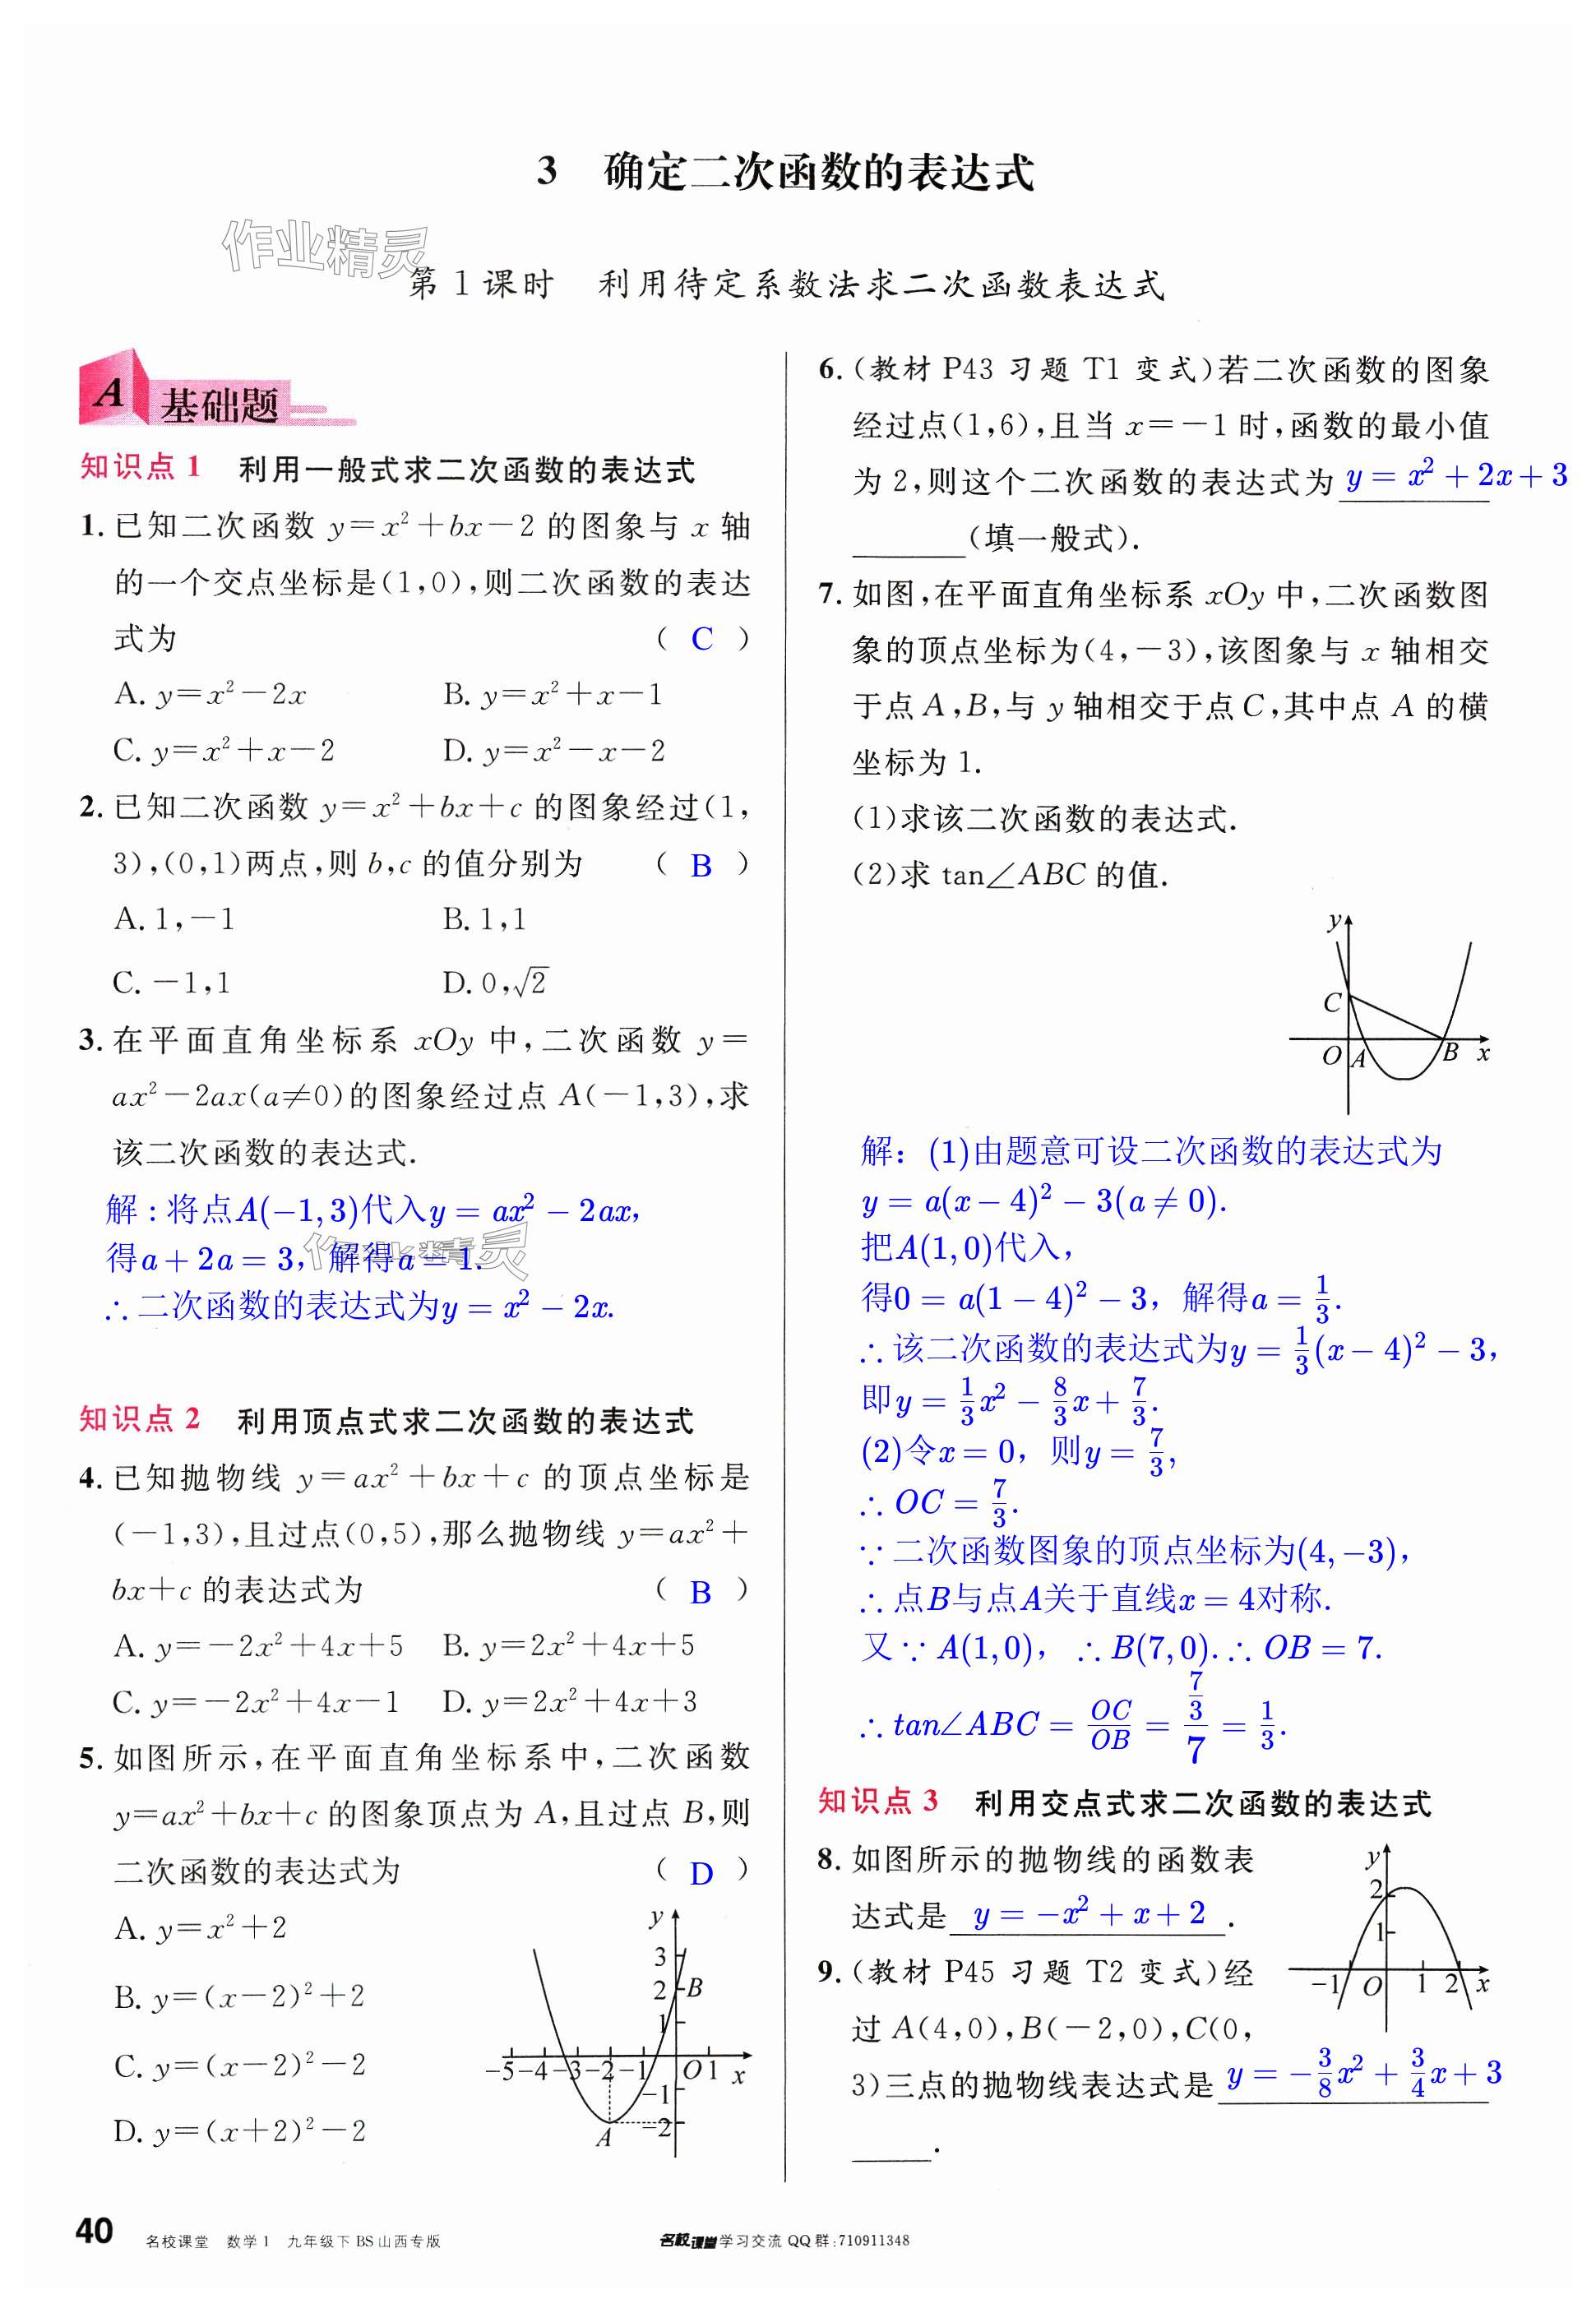 3 确定二次函数的表达式
作业精灵
第1课时 利用待定系数法求二次函数表达式
A 基础题
知识点1 利用一般式求二次函数的表达式
1. 已知二次函数 y=x²+bx-2 的图象与 x 轴
的一个交点坐标是(1,0),则二次函数的表达
式为 ( C )
A. y=x²-2x B. y=x²+x-1
C. y=x²+x-2 D. y=x²-x-2
2. 已知二次函数 y=x²+bx+c 的图象经过(1,
3),(0,1)两点,则 b,c 的值分别为 ( B )
A. 1,-1 B. 1,1
C. -1,1 D. 0,√2
3. 在平面直角坐标系 xOy 中,二次函数 y=
ax²-2ax(a≠0)的图象经过点 A(-1,3),求
该二次函数的表达式.
解:将点A(-1,3)代入y = ax² - 2ax,
得a + 2a = 3, 解得a = 1.
作业精灵
∴ 二次函数的表达式为y = x² - 2x.
知识点2 利用顶点式求二次函数的表达式
4. 已知抛物线 y=ax²+bx+c 的顶点坐标是
(-1,3),且过点(0,5),那么抛物线 y=ax²+
bx+c 的表达式为 ( B )
A. y=-2x²+4x+5 B. y=2x²+4x+5
C. y=-2x²+4x-1 D. y=2x²+4x+3
5. 如图所示,在平面直角坐标系中,二次函数
y=ax²+bx+c 的图象顶点为 A,且过点 B,则
二次函数的表达式为 ( D )
A. y=x²+2
B. y=(x-2)²+2
C. y=(x-2)²-2
D. y=(x+2)²-2
y
3
2 B
1
-5 -4 -3 -2 -1 O 1 x
-1
A -2
6. (教材 P43 习题 T1 变式)若二次函数的图象
经过点(1,6),且当 x=-1 时,函数的最小值
为 2,则这个二次函数的表达式为 y = x² + 2x + 3
______(填一般式).
7. 如图,在平面直角坐标系 xOy 中,二次函数图
象的顶点坐标为(4,-3),该图象与 x 轴相交
于点 A,B,与 y 轴相交于点 C,其中点 A 的横
坐标为 1.
(1)求该二次函数的表达式.
(2)求 tan∠ABC 的值.
y
C
O A B x
解: (1)由题意可设二次函数的表达式为
y = a(x - 4)² - 3(a ≠ 0).
把A(1,0)代入,
得0 = a(1 - 4)² - 3, 解得a = 1/3.
∴ 该二次函数的表达式为y = 1/3(x - 4)² - 3,
即y = 1/3x² - 8/3x + 7/3.
(2)令x = 0, 则y = 7/3,
∴ OC = 7/3.
∵ 二次函数图象的顶点坐标为(4,-3),
∴ 点B与点A关于直线x = 4对称.
又 ∵ A(1,0), ∴ B(7,0). ∴ OB = 7.
∴ tan∠ABC = OC/OB = (7/3)/7 = 1/3.
知识点3 利用交点式求二次函数的表达式
8. 如图所示的抛物线的函数表
达式是 y = -x² + x + 2 .
y
2
1
-1 O 1 2 x
9. (教材 P45 习题 T2 变式)经
过 A(4,0),B(-2,0),C(0,
3)三点的抛物线表达式是 y = -3/8x² + 3/4x + 3
____.
40 名校课堂 数学1 九年级下 BS 山西专版
名校课堂学习交流 QQ 群:710911348